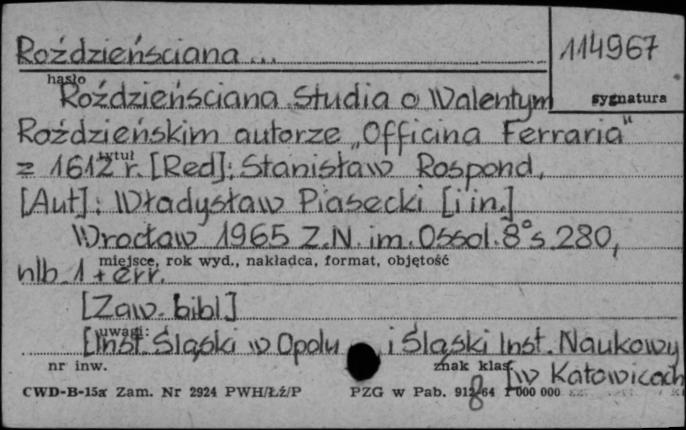 Roździeńsciana ...
114967
hasło
sygnatura
Roździeńsciana. Studia o Walentym
Roździeńskim autorze „Officina Ferraria"
tytuł
z 1612 r. [Red]: Stanisław Rospond,
[Aut]: Władysław Piasecki [i in.]
Wrocław 1965 Z.N. im. Ossol. 8° s. 280,
miejsce, rok wyd., nakładca, format, objętość
nlb. 1 + err.
[Zaw. bibl]
uwagi:
[Inst. Śląski w Opolu i Śląski Inst. Naukowy
nr inw.
znak klas.
[w Katowicach
CWD-B-15a Zam. Nr 2924 PWH/Łź/P
PZG w Pab. 912 8 64 1 000 000